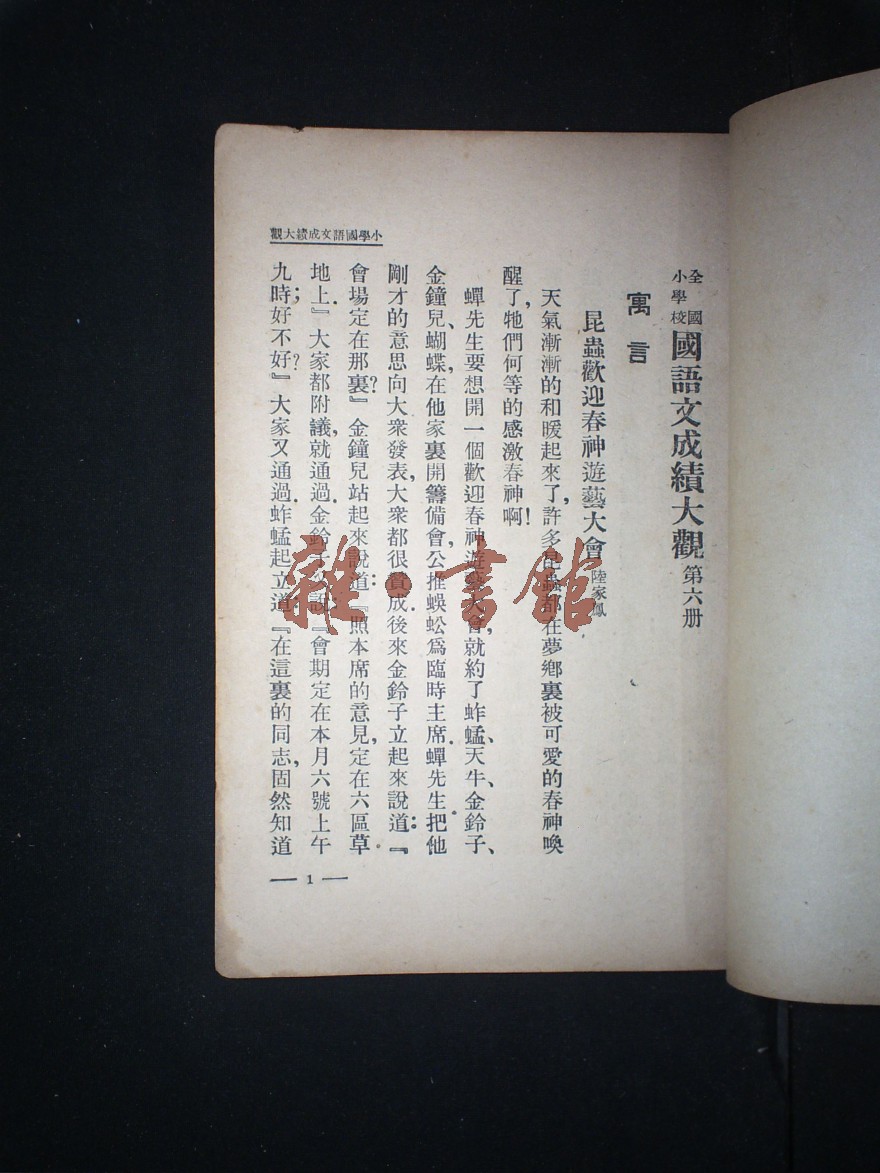 全國
小學校
國語文成績大觀 第六册
寓言
昆蟲歡迎春神遊藝大會 陸家鳳
天氣漸漸的和暖起來了,許多昆蟲都在夢鄉裏被可愛的春神喚
醒了,牠們何等的感激春神啊!
蟬先生要想開一個歡迎春神遊藝大會,就約了蚱蜢、天牛、金鈴子、
金鐘兒、蝴蝶,在他家裏開籌備會,公推蜈蚣爲臨時主席.蟬先生把他
剛才的意思向大衆發表,大衆都很贊成,後來金鈴子立起來說道:『
會場定在那裏?』金鐘兒站起來說道:『照本席的意見,定在六區草
地上.』大家都附議,就通過.金鈴子又說:『會期定在本月六號上午
九時;好不好?』大家又通過.蚱蜢起立道:『在這裏的同志,固然知道
小學國語文成績大觀
1
雜·書館